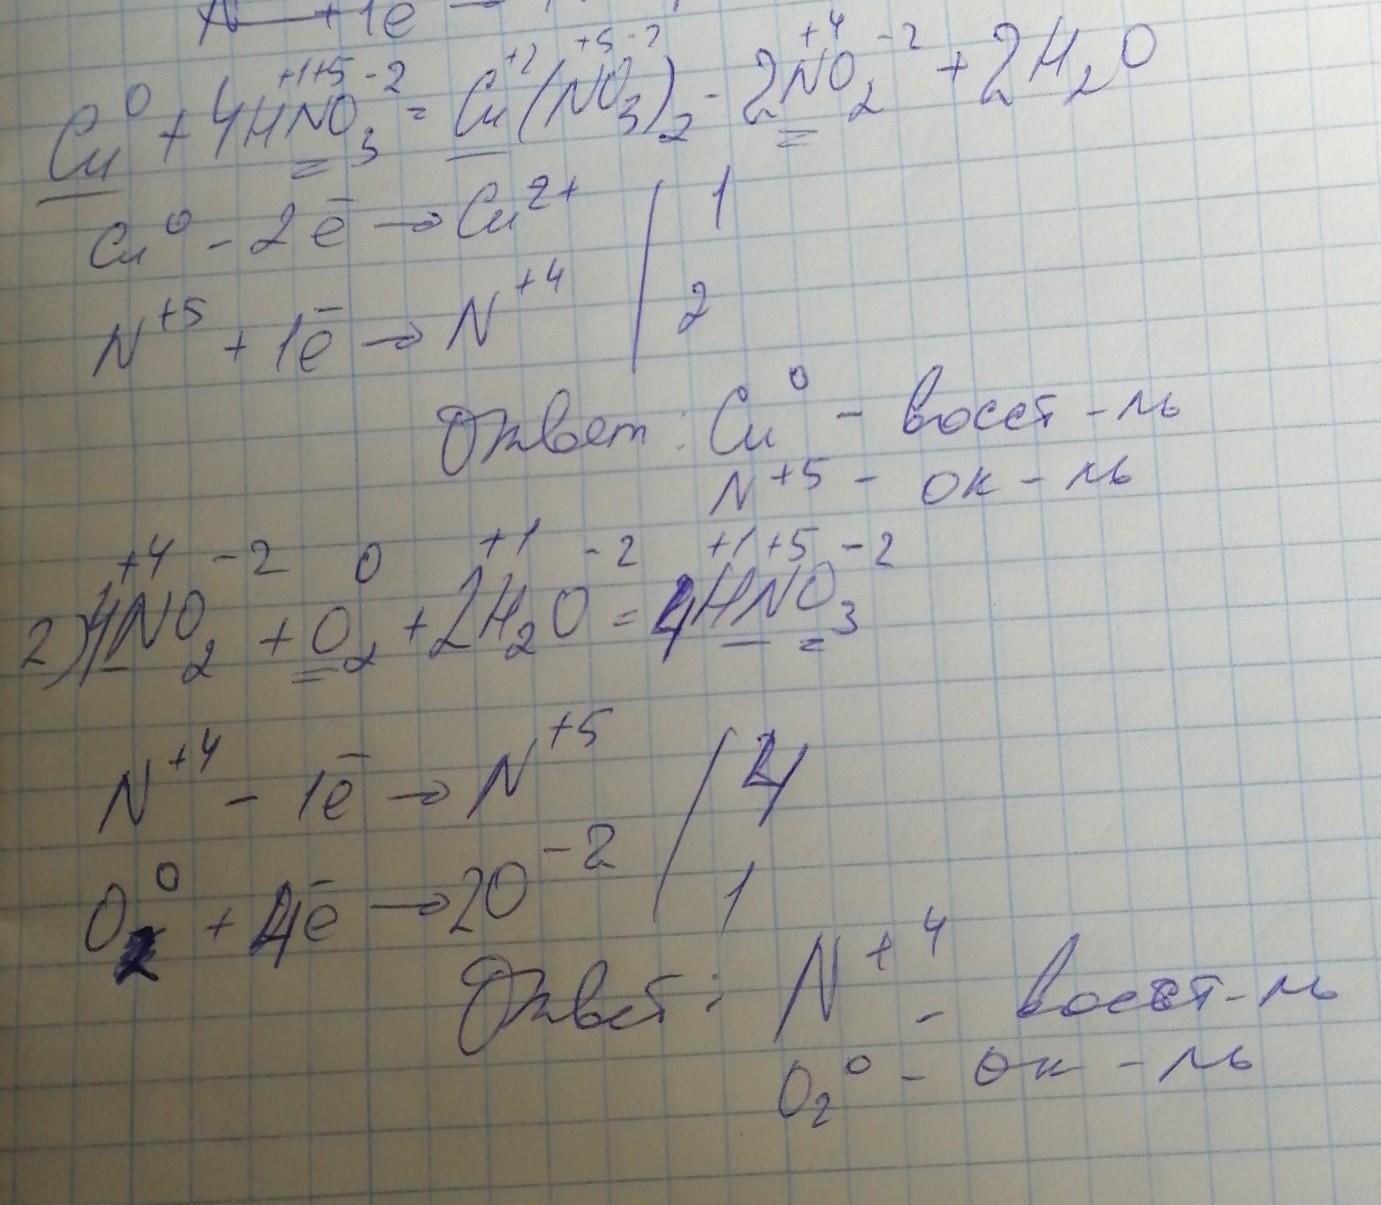 N +1ē →
Cu⁰ + 4H⁺¹N⁺⁵O₃⁻² = Cu⁺²(N⁺⁵O₃⁻²)₂ - 2N⁺⁴O₂⁻² + 2H₂O
Cu⁰ - 2ē → Cu²⁺ | 1
N⁺⁵ + 1ē → N⁺⁴ | 2
Ответ: Cu⁰ - восст-ль
N⁺⁵ - ок-ль
2) 4N⁺⁴O₂⁻² + O₂⁰ + 2H₂⁺¹O⁻² = 4H⁺¹N⁺⁵O₃⁻²
N⁺⁴ - 1ē → N⁺⁵ | 4
O₂⁰ + 4ē → 2O⁻² | 1
Ответ: N⁺⁴ - восст-ль
O₂⁰ - ок-ль